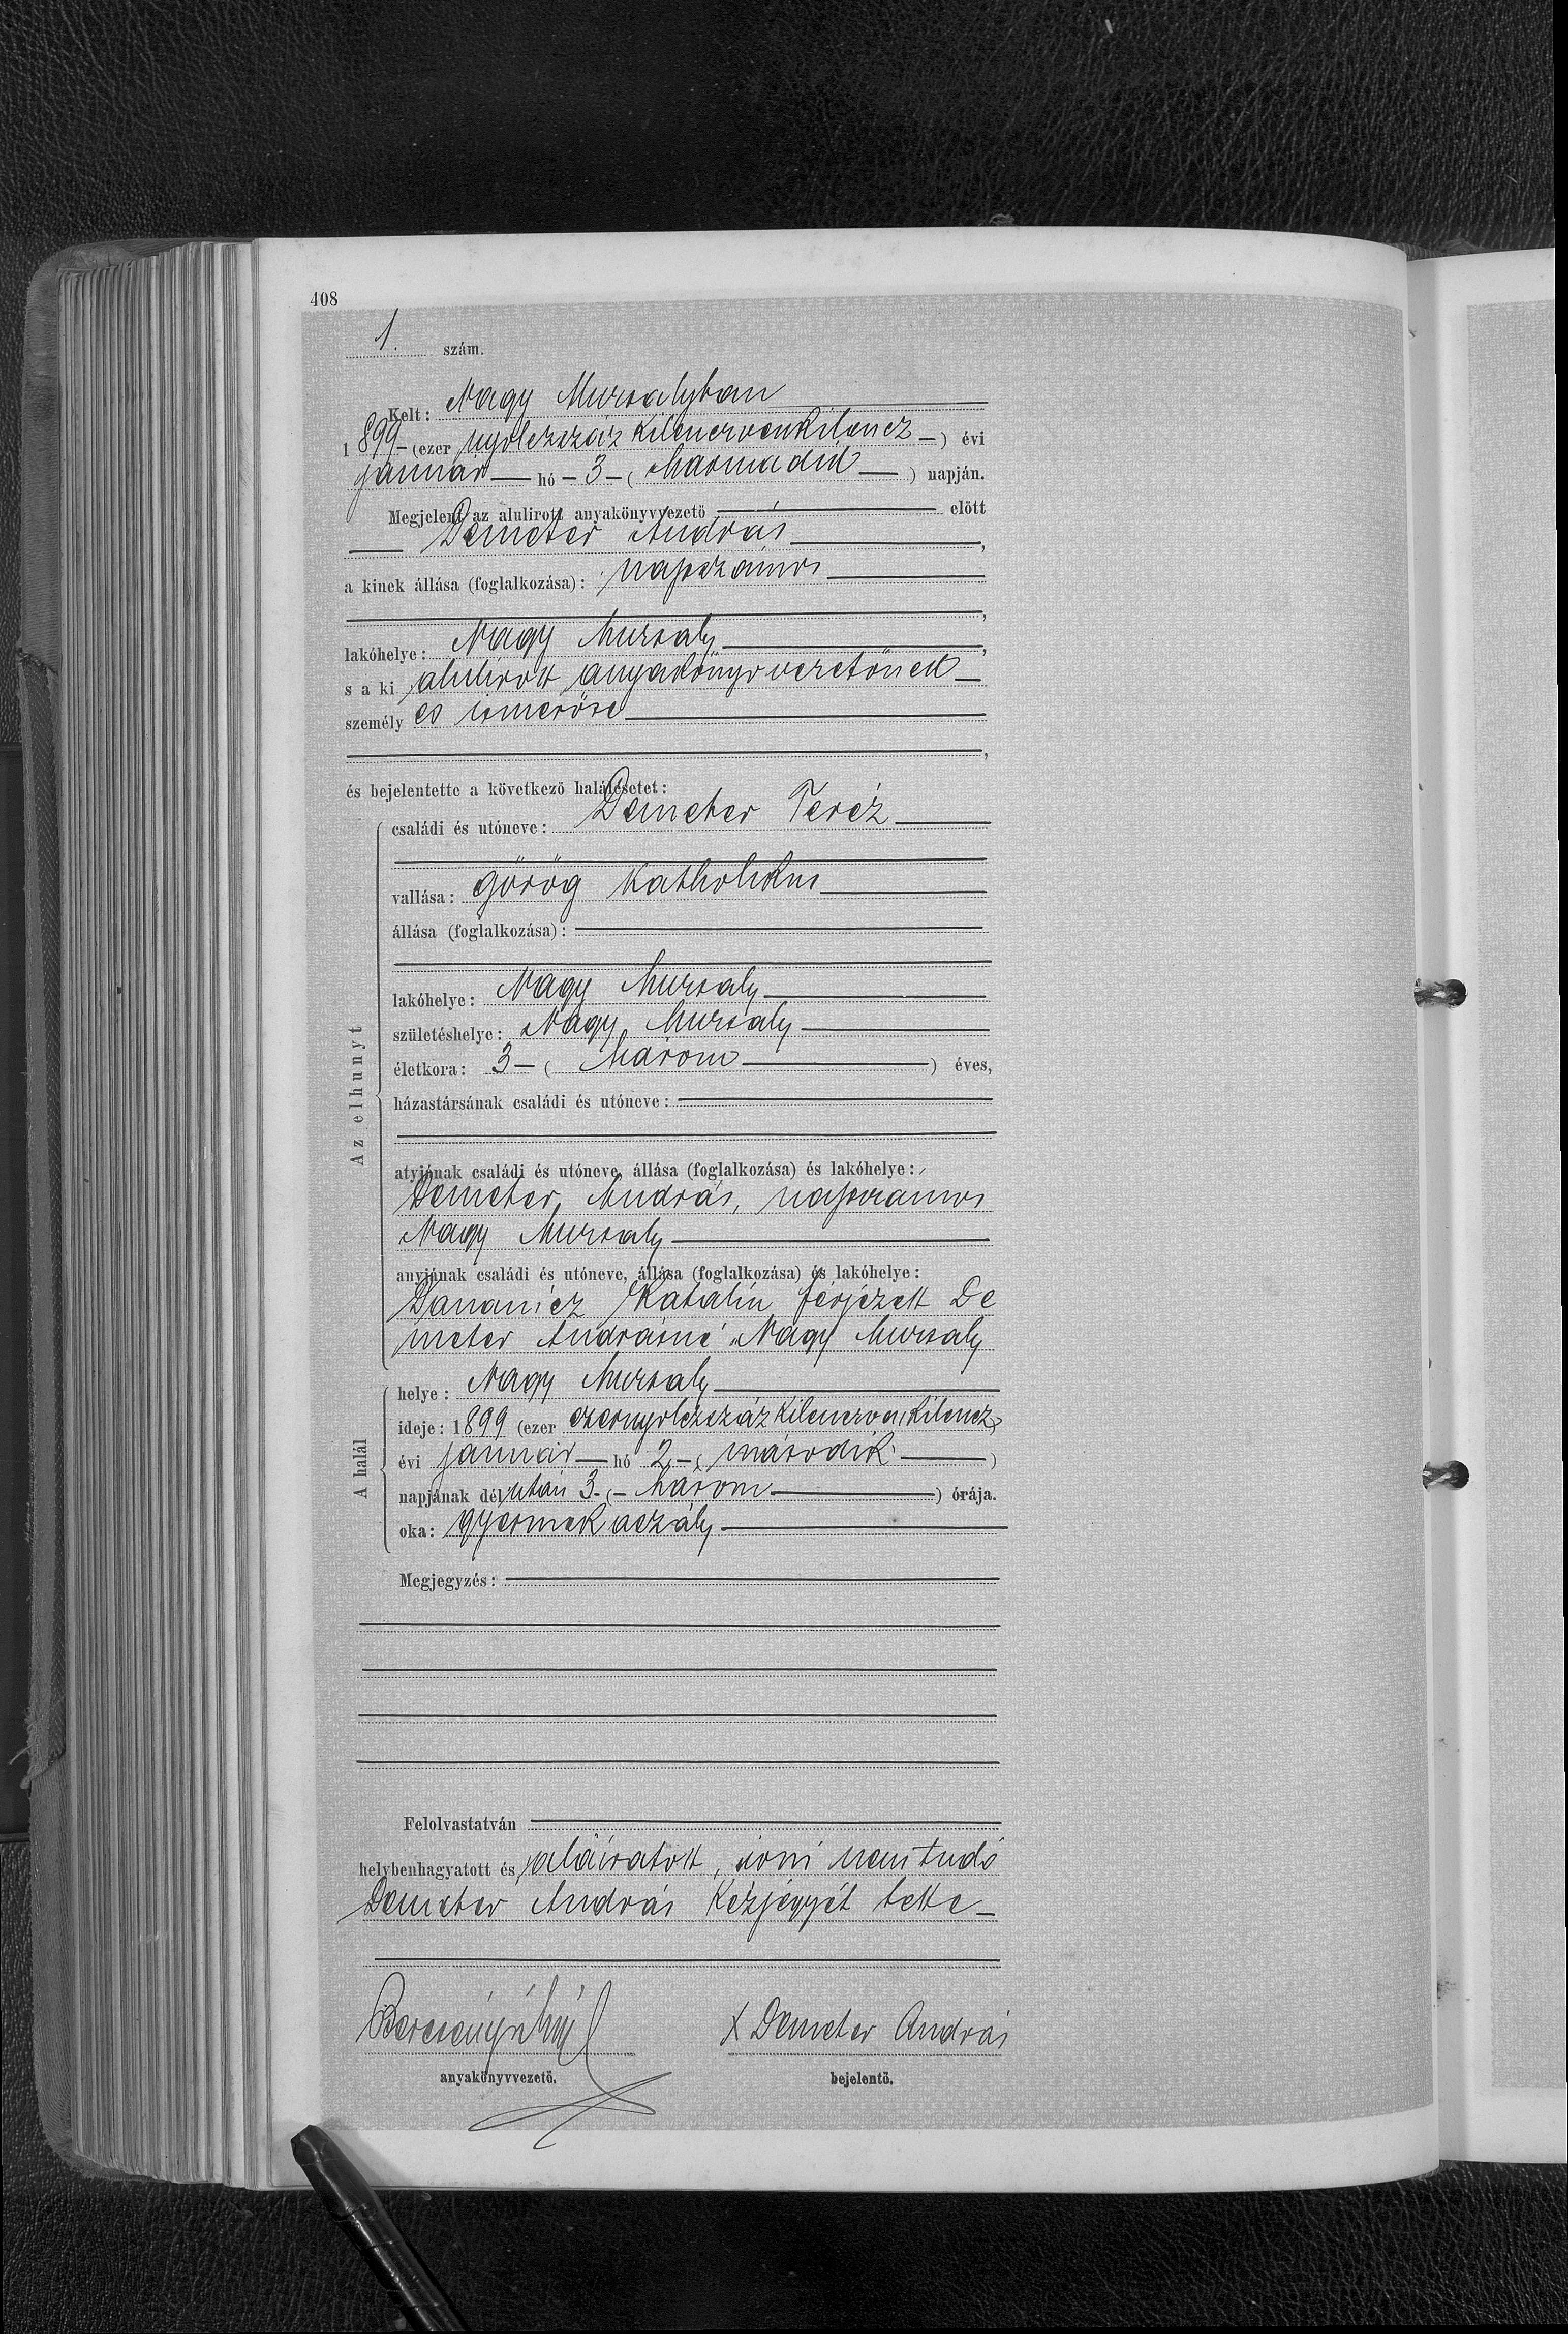 408
1. szám.
Kelt: Nagy Muzsalyban
1899 – (ezer nyolczszáz kilenczvenkilencz –) évi
január hó – 3 – ( harmadik ) napján.
Megjelent az alulirott anyakönyvvezetö előtt
Demeter András,
a kinek állása (foglalkozása): napszámos
,
lakóhelye: Nagy Muzsaly,
s a ki alulirott anyakönyvvezetőnek
személyes ismerőse
,
és bejelentette a következö halálesetet:
Az elhunyt
családi és utóneve: Demeter Teréz
vallása: görög katholikus
állása (foglalkozása):
lakóhelye: Nagy Muzsaly
születéshelye: Nagy Muzsaly
életkora: 3 – ( három ) éves,
házastársának családi és utóneve:
atyjának családi és utóneve, állása (foglalkozása) és lakóhelye:
Demeter András, napszámos
Nagy Muzsaly
anyjának családi és utóneve, állása (foglalkozása) és lakóhelye:
Katalin férjezett De
meter Andrásné Nagy Muzsaly
A halál
helye: Nagy Muzsaly
ideje: 1899 (ezer ezernyolczszáz kilenczvenkilencz)
évi január hó 2 – ( második )
napjának délután 3 – ( – három ) órája.
oka: gyermekaszály
Megjegyzés:
Felolvastatván
helybenhagyatott és aláiratott, irni nem tudó
Demeter András kézjegyét tette –
X Demeter András
anyakönyvvezetö. bejelentö.